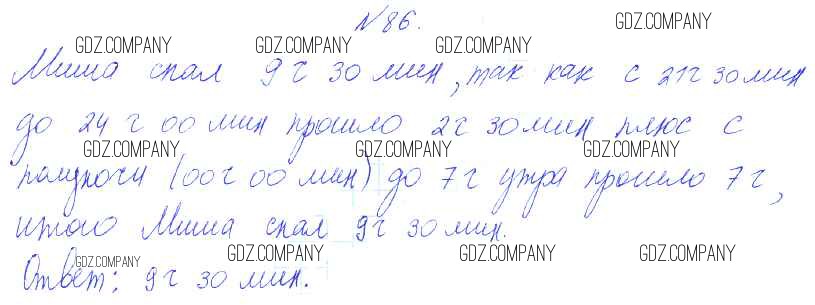 № 86.
GDZ.COMPANY
GDZ.COMPANY GDZ.COMPANY GDZ.COMPANY
Миша спал 9 ч 30 мин, так как с 21 ч 30 мин
до 24 ч 00 мин прошло 2 ч 30 мин плюс с
GDZ.COMPANY GDZ.COMPANY GDZ.COMPANY
полуночи (00 ч 00 мин) до 7 ч утра прошло 7 ч,
итого Миша спал 9 ч 30 мин.
GDZ.COMPANY GDZ.COMPANY GDZ.COMPANY GDZ.COMPANY
Ответ: 9 ч 30 мин.